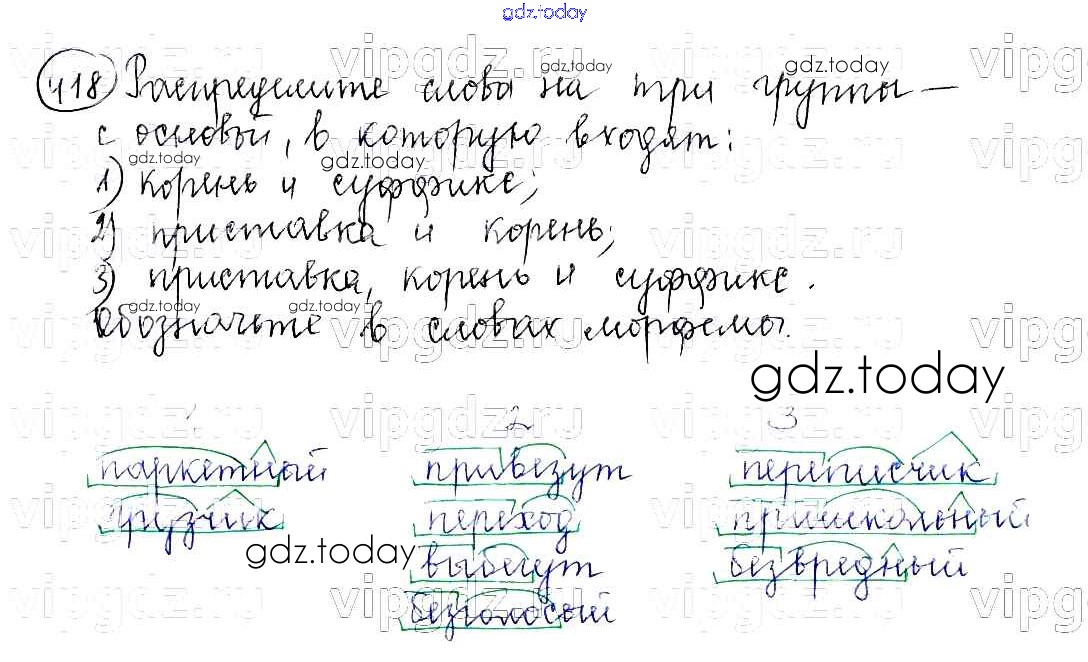 gdz.today
418 Распределите слова на три группы –
с основой, в которую входят:
1) корень и суффикс;
2) приставка и корень;
3) приставка, корень и суффикс.
Обозначьте в словах морфемы.
gdz.today
1 2 3
паркетный привезут переписчик
грузчик переход пришкольный
gdz.today
выбегут безвредный
безголосый